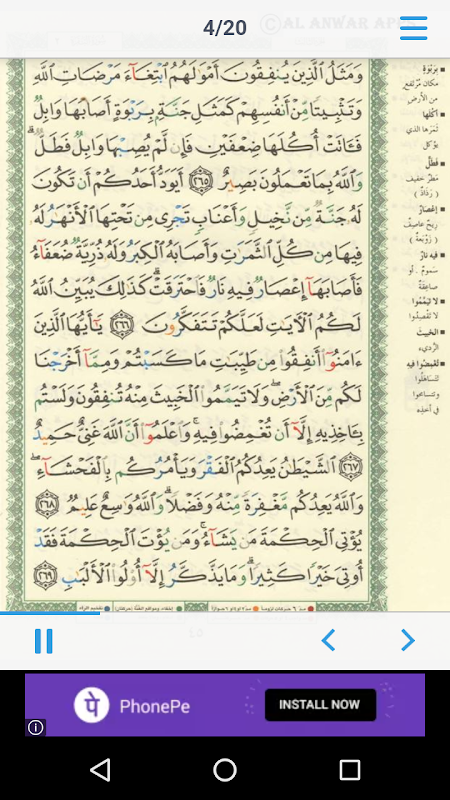 ©AL ANWAR APPS
4/20
وَمَثَلُ ٱلَّذِينَ يُنفِقُونَ أَمْوَٰلَهُمُ ٱبْتِغَآءَ مَرْضَاتِ ٱللَّهِ
وَتَثْبِيتًا مِّنْ أَنفُسِهِمْ كَمَثَلِ جَنَّةٍۭ بِرَبْوَةٍ أَصَابَهَا وَابِلٌ
فَـَٔاتَتْ أُكُلَهَا ضِعْفَيْنِ فَإِن لَّمْ يُصِبْهَا وَابِلٌ فَطَلٌّ ۗ
وَٱللَّهُ بِمَا تَعْمَلُونَ بَصِيرٌ ٢٦٥ أَيَوَدُّ أَحَدُكُمْ أَن تَكُونَ
لَهُۥ جَنَّةٌ مِّن نَّخِيلٍ وَأَعْنَابٍ تَجْرِى مِن تَحْتِهَا ٱلْأَنْهَٰرُ لَهُۥ
فِيهَا مِن كُلِّ ٱلثَّمَرَٰتِ وَأَصَابَهُ ٱلْكِبَرُ وَلَهُۥ ذُرِّيَّةٌ ضُعَفَآءُ
فَأَصَابَهَآ إِعْصَارٌ فِيهِ نَارٌ فَٱحْتَرَقَتْ ۗ كَذَٰلِكَ يُبَيِّنُ ٱللَّهُ
لَكُمُ ٱلْـَٔايَٰتِ لَعَلَّكُمْ تَتَفَكَّرُونَ ٢٦٦ يَٰٓأَيُّهَا ٱلَّذِينَ
ءَامَنُوٓا۟ أَنفِقُوا۟ مِن طَيِّبَٰتِ مَا كَسَبْتُمْ وَمِمَّآ أَخْرَجْنَا
لَكُم مِّنَ ٱلْأَرْضِ ۖ وَلَا تَيَمَّمُوا۟ ٱلْخَبِيثَ مِنْهُ تُنفِقُونَ وَلَسْتُم
بِـَٔاخِذِيهِ إِلَّآ أَن تُغْمِضُوا۟ فِيهِ ۚ وَٱعْلَمُوٓا۟ أَنَّ ٱللَّهَ غَنِىٌّ حَمِيدٌ
٢٦٧ ٱلشَّيْطَٰنُ يَعِدُكُمُ ٱلْفَقْرَ وَيَأْمُرُكُم بِٱلْفَحْشَآءِ ۖ
وَٱللَّهُ يَعِدُكُم مَّغْفِرَةً مِّنْهُ وَفَضْلًا ۗ وَٱللَّهُ وَٰسِعٌ عَلِيمٌ ٢٦٨
يُؤْتِى ٱلْحِكْمَةَ مَن يَشَآءُ ۚ وَمَن يُؤْتَ ٱلْحِكْمَةَ فَقَدْ
أُوتِىَ خَيْرًا كَثِيرًا ۗ وَمَا يَذَّكَّرُ إِلَّآ أُو۟لُوا۟ ٱلْأَلْبَٰبِ ٢٦٩
بِرَبْوَةٍ
مكان مرتفع
من الأرض
أُكُلَها
ثمرَها الذي
يؤكل
فَطَلٌّ
مطر خفيف
(رذاذ)
إعصارٌ
ريح عاصف
(زوبعة)
فيه نارٌ
سموم . أو
صاعقة
لا تيمّموا
لا تقصدوا
الخبيث
الرّديء
تُغمضوا فيه
تتساهلوا
وتتسامحوا
في أخذه
٤٥
पे PhonePe
INSTALL NOW